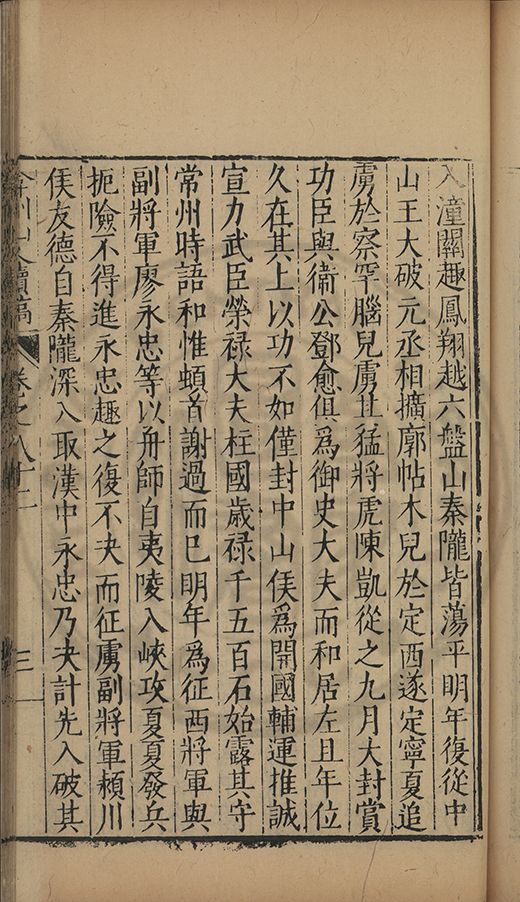 入潼關趣鳳翔越六盤山秦隴皆蕩平明年復從中
山王大破元丞相擴廓帖木兒於定西遂定寧夏追
虜於察罕腦兒虜其猛將虎陳凱從之九月大封賞
功臣與衞公鄧愈俱爲御史大夫而和居左且年位
久在其上以功不如僅封中山侯爲開國輔運推誠
宣力武臣榮禄大夫柱國歲禄千五百石始露其守
常州時語和惟頓首謝過而已明年爲征西將軍與
副將軍廖永忠等以舟師自夷陵入峽攻夏夏發兵
扼險不得進永忠趣之復不决而征虜副將軍潁川
侯友德自秦隴深入取漢中永忠乃决計先入破其
弇州山人續稿 卷之八十二 三